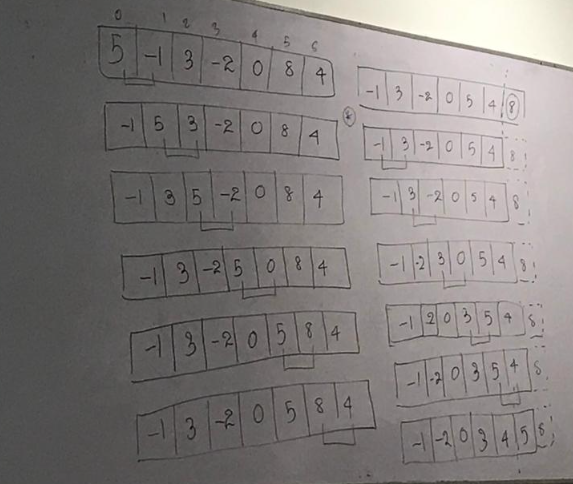 0 1 2 3 4 5 6
5 -1 3 -2 0 8 4
-1 5 3 -2 0 8 4
-1 3 5 -2 0 8 4
-1 3 -2 5 0 8 4
-1 3 -2 0 5 8 4
-1 3 -2 0 5 8 4
-1 3 -2 0 5 4 8
-1 3 -2 0 5 4 8
-1 3 -2 0 5 4 8
-1 -2 3 0 5 4 8
-1 2 0 3 5 4 8
-1 -2 0 3 5 4 8
-1 -2 0 3 4 5 8